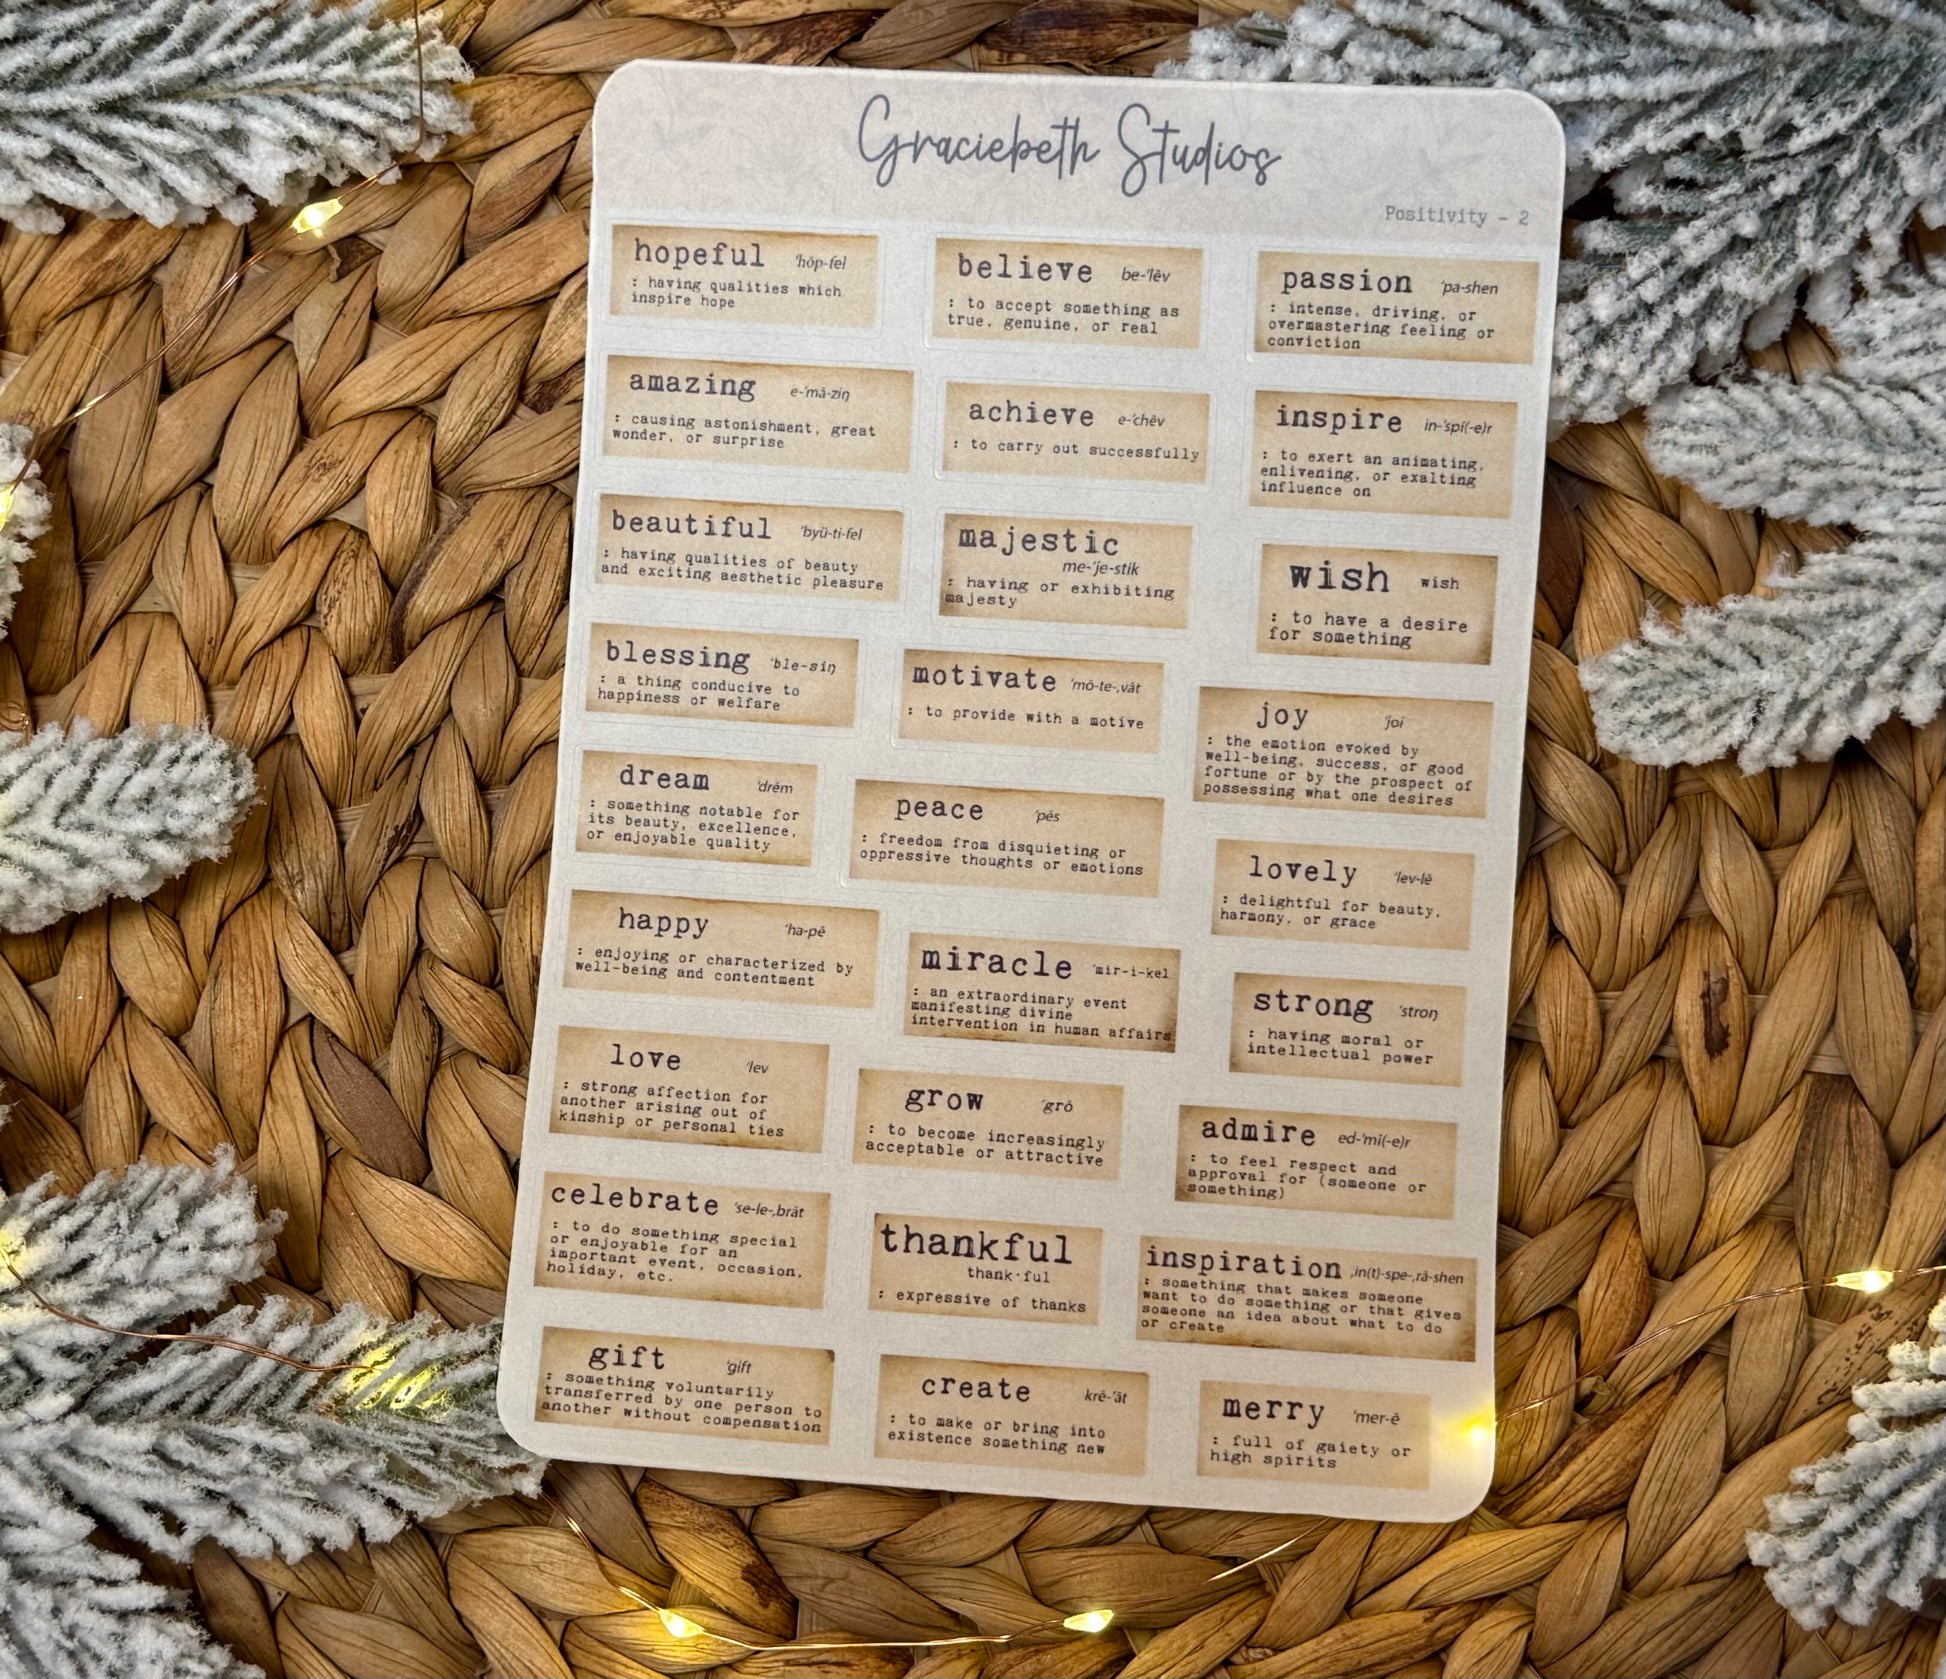 Graciebeth Studios
Positivity - 2
hopeful 'hōp-fel
: having qualities which
inspire hope
amazing e-'mā-ziŋ
: causing astonishment, great
wonder, or surprise
beautiful 'byü-ti-fel
: having qualities of beauty
and exciting aesthetic pleasure
blessing 'ble-siŋ
: a thing conducive to
happiness or welfare
dream 'drēm
: something notable for
its beauty, excellence,
or enjoyable quality
happy 'ha-pē
: enjoying or characterized by
well-being and contentment
love 'lev
: strong affection for
another arising out of
kinship or personal ties
celebrate 'se-le-,brāt
: to do something special
or enjoyable for an
important event, occasion,
holiday, etc.
gift 'gift
: something voluntarily
transferred by one person to
another without compensation
believe be-'lēv
: to accept something as
true, genuine, or real
achieve e-'chēv
: to carry out successfully
majestic
me-'je-stik
: having or exhibiting
majesty
motivate 'mō-te-,vāt
: to provide with a motive
peace 'pēs
: freedom from disquieting or
oppressive thoughts or emotions
miracle 'mir-i-kel
: an extraordinary event
manifesting divine
intervention in human affairs
grow 'grō
: to become increasingly
acceptable or attractive
thankful
thank·ful
: expressive of thanks
create krē-'āt
: to make or bring into
existence something new
passion 'pa-shen
: intense, driving, or
overmastering feeling or
conviction
inspire in-'spī(-e)r
: to exert an animating,
enlivening, or exalting
influence on
wish wish
: to have a desire
for something
joy 'joi
: the emotion evoked by
well-being, success, or good
fortune or by the prospect of
possessing what one desires
lovely 'lev-lē
: delightful for beauty,
harmony, or grace
strong 'stroŋ
: having moral or
intellectual power
admire ed-'mī(-e)r
: to feel respect and
approval for (someone or
something)
inspiration ,in(t)-spe-,rā-shen
: something that makes someone
want to do something or that gives
someone an idea about what to do
or create
merry 'mer-ē
: full of gaiety or
high spirits